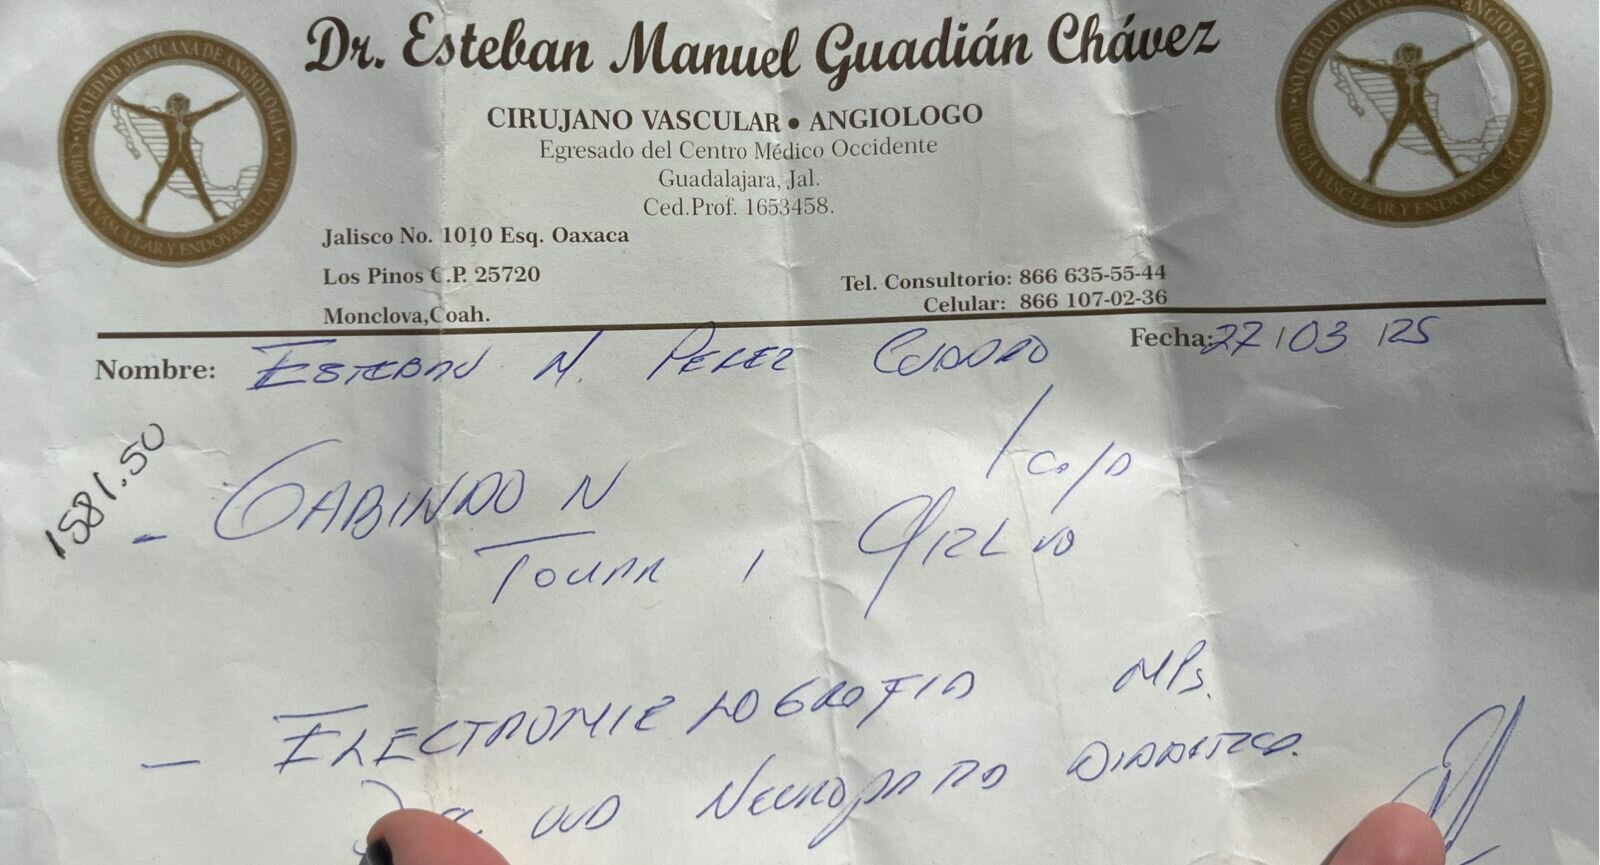 Dr. Esteban Manuel Guadián Chávez
SOCIEDAD MEXICANA DE ANGIOLOGIA
CIRUGIA VASCULAR Y ENDOVASCULAR A.C.
SOCIEDAD MEXICANA DE ANGIOLOGIA
CIRUGIA VASCULAR Y ENDOVASCULAR A.C.
CIRUJANO VASCULAR • ANGIOLOGO
Egresado del Centro Médico Occidente
Guadalajara, Jal.
Ced.Prof. 1653458.
Jalisco No. 1010 Esq. Oaxaca
Los Pinos C.P. 25720
Monclova,Coah.
Tel. Consultorio: 866 635-55-44
Celular: 866 107-02-36
Fecha: 27/03/25
Nombre: ESTEBAN M. PEREZ
1581.50
- GABINDO N 1 co/D
TOMAR 1
- ELECTROMIELOGRAFIA MPs.
NEUROPATIA DIABETICA.